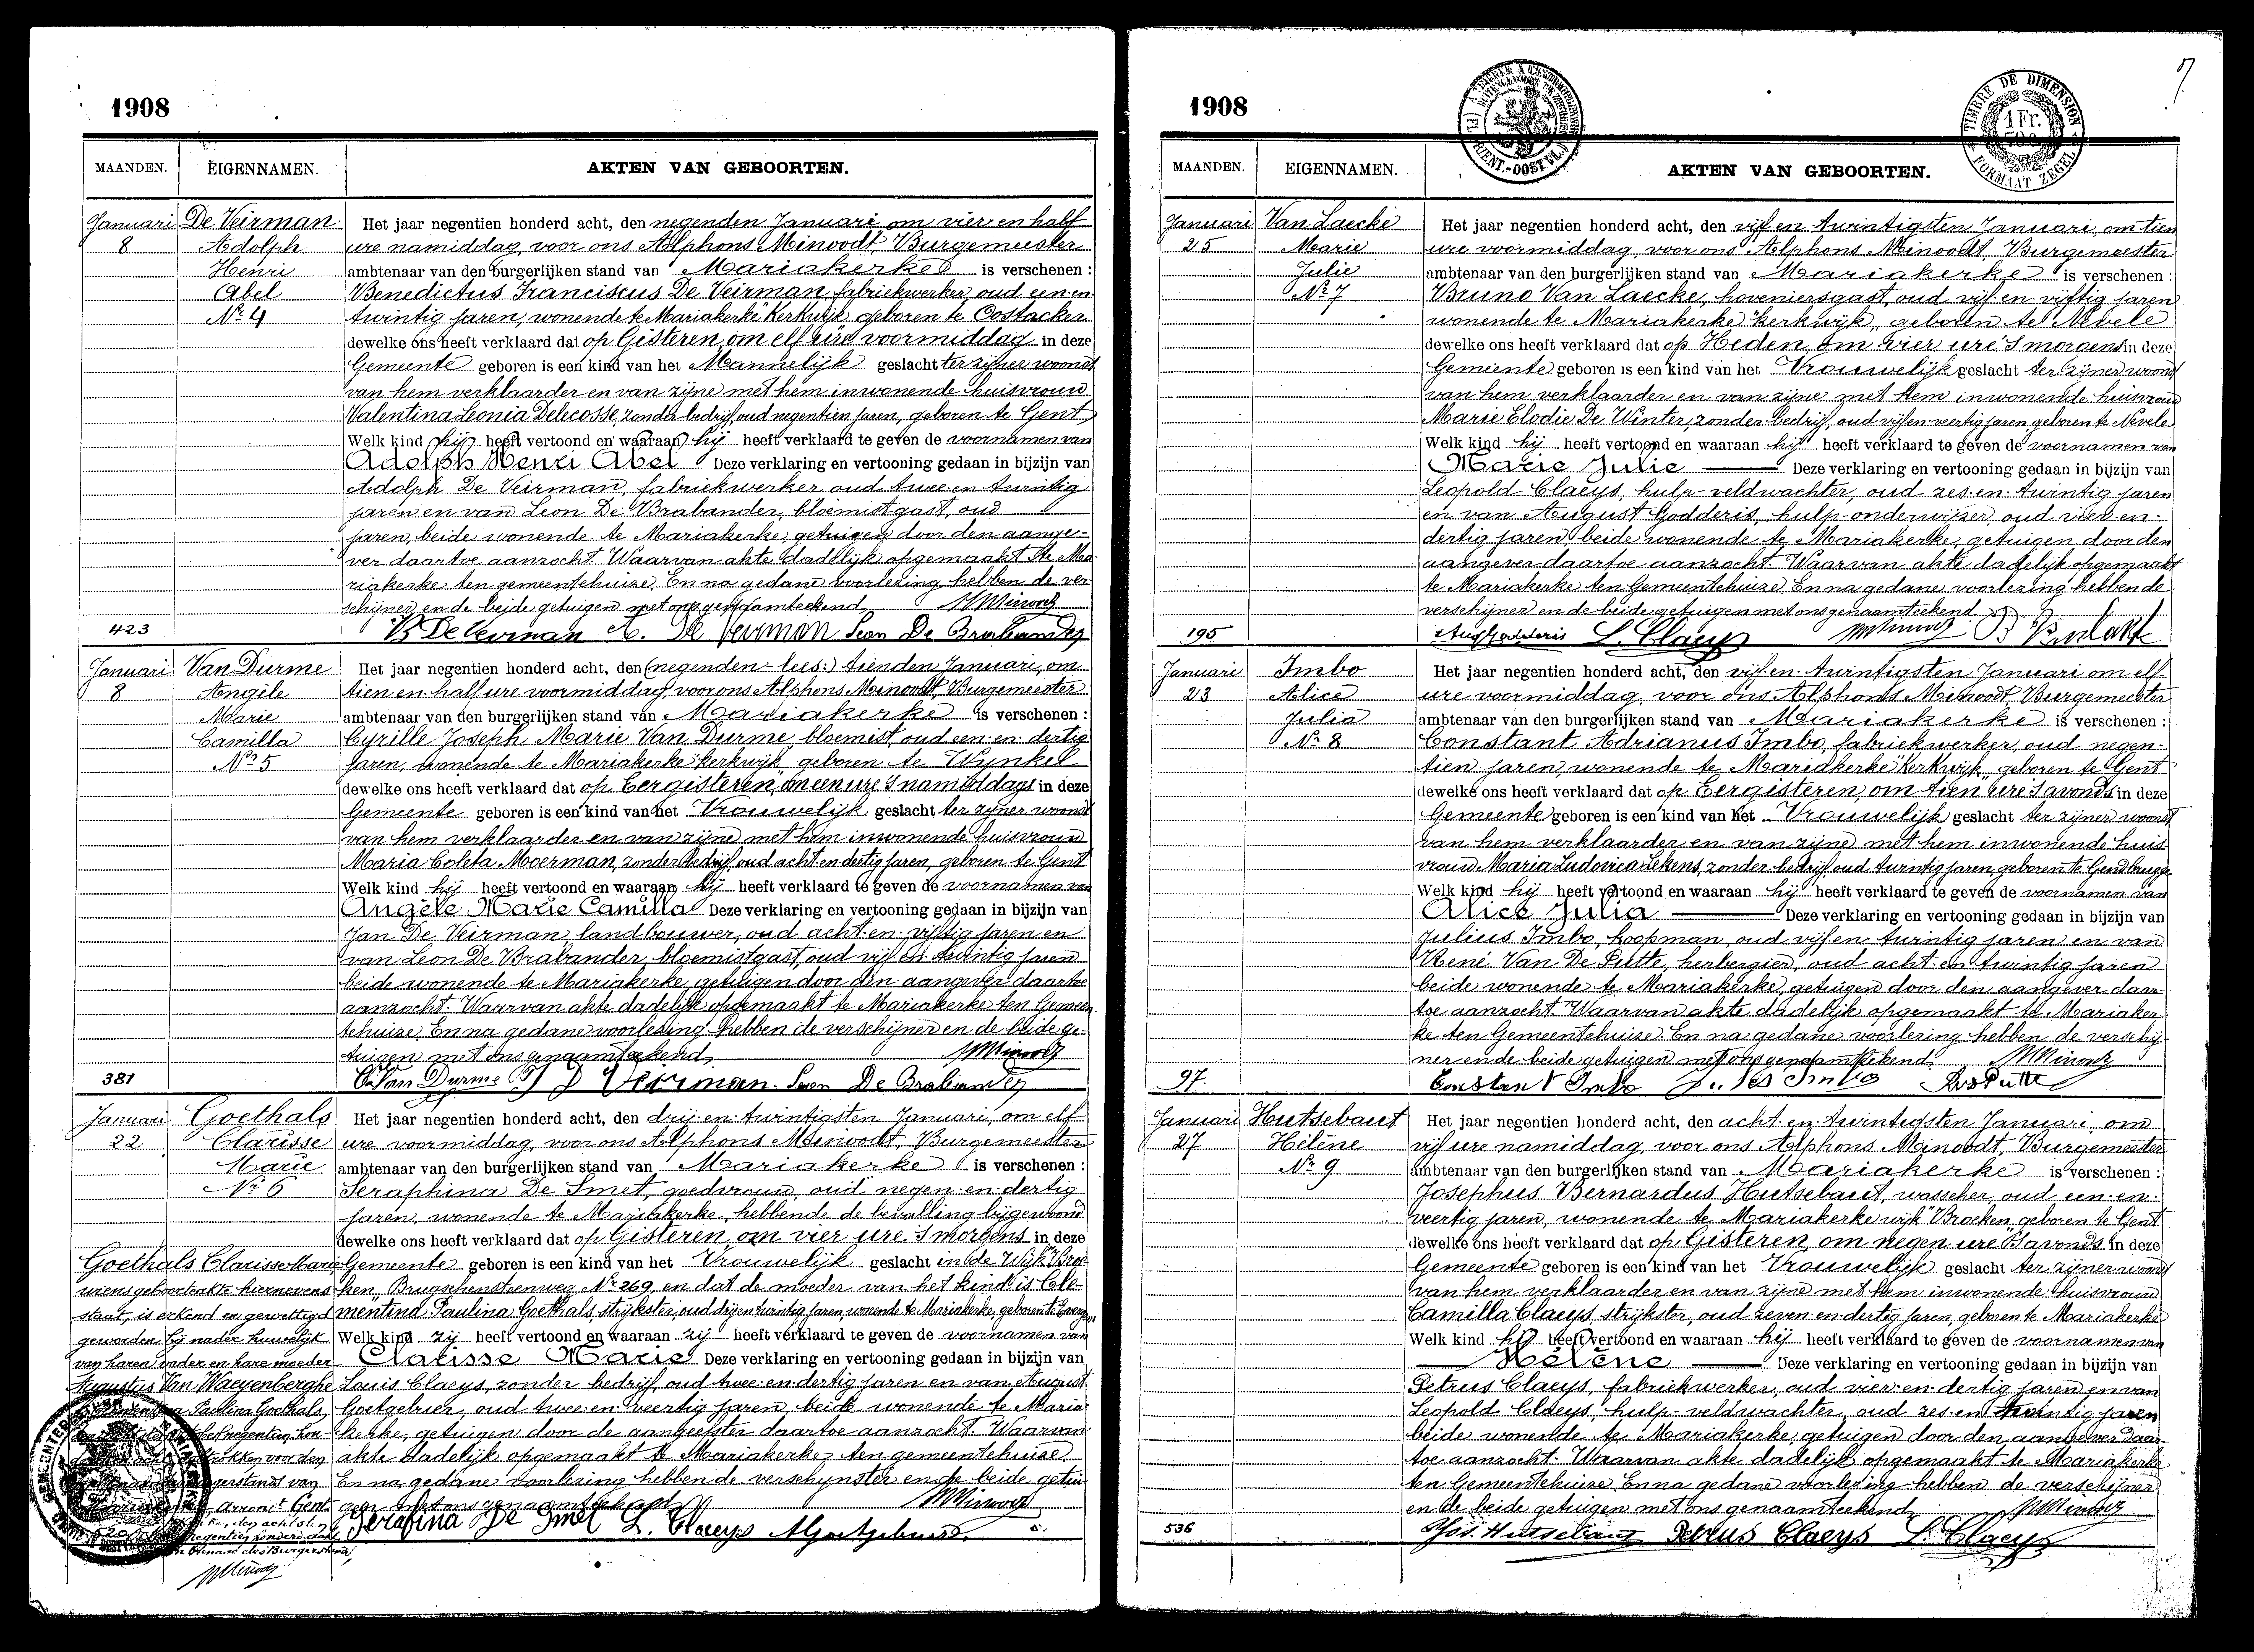 1908
MAANDEN. EIGENNAMEN. AKTEN VAN GEBOORTEN.
Januari De Veirman Het jaar negentien honderd acht, den negenden Januari om vier en half
8 Adolph ure namiddag, voor ons Alphons Minoodt Burgemeester
Henri ambtenaar van den burgerlijken stand van Mariakerke is verschenen :
Abel Benedictus Franciscus De Veirman, fabriekwerker, oud een en
Nr 4 twintig jaren, wonende te Mariakerke "Kerkwijk, geboren te Oostacker
dewelke ons heeft verklaard dat op Gisteren, om elf ure voormiddag in deze
Gemeente geboren is een kind van het Mannelijk geslacht ter zijner woonst
van hem verklaarder en van zijne met hem inwonende huisvrouw
Valentina Leonia Delecosse, zonder bedrijf, oud negentien jaren, geboren te Gent
Welk kind hij heeft vertoond en waaraan hij heeft verklaard te geven de voornamen van
Adolph Henri Abel Deze verklaring en vertooning gedaan in bijzijn van
Adolph De Veirman, fabriekwerker oud twee en twintig
jaren en van Leon De Brabander, bloemistgast, oud
jaren, beide wonende te Mariakerke, getuigen door den aange-
ver daartoe aanzocht. Waarvan akte dadelijk opgemaakt te Ma-
riakerke ten gemeentehuize. En na gedane voorlezing hebben de ver-
schijner en de beide getuigen met ons genaamteekend. Minoodt
423 B De Veirman A. De Veirman Leon De Brabander
Januari Van Durme Het jaar negentien honderd acht, den (negenden - lees:) tienden Januari, om
8 Angèle tien en half ure voormiddag voor ons Alphons Minoodt, Burgemeester
Marie ambtenaar van den burgerlijken stand van Mariakerke is verschenen :
Camilla Cyrille Joseph Marie Van Durme, bloemist, oud een en dertig
Nr 5 jaren, wonende te Mariakerke "kerkwijk, geboren te Wynkel
dewelke ons heeft verklaard dat op Eergisteren, om een ure 's namiddags in deze
Gemeente geboren is een kind van het Vrouwelijk geslacht ter zijner woonst
van hem verklaarder en van zijne met hem inwonende huisvrouw
Maria Coleta Moerman, zonder bedrijf, oud acht en dertig jaren, geboren te Gent
Welk kind hij heeft vertoond en waaraan hij heeft verklaard te geven de voornamen van
Angèle Marie Camilla Deze verklaring en vertooning gedaan in bijzijn van
Jan De Veirman landbouwer, oud acht en vijftig jaren en
van Leon De Brabander, bloemistgast, oud vijf en twintig jaren
beide wonende te Mariakerke, getuigen door den aangever daartoe
aanzocht. Waarvan akte dadelijk opgemaakt te Mariakerke ten Gemeen-
tehuize. En na gedane voorlezing hebben de verschijner en de beide ge-
tuigen met ons genaamteekend. Minoodt
381 C. Van Durme J D Veirman. Leon De Brabander
Januari Goethals Het jaar negentien honderd acht, den drij en twintigsten Januari, om elf
22 Clarisse ure voormiddag, voor ons Alphons Minoodt, Burgemeester
Marie ambtenaar van den burgerlijken stand van Mariakerke is verschenen :
Nr 6 Seraphina De Smet, goedvrouw, oud negen en dertig
jaren, wonende te Mariakerke, hebbende de bevalling bijgewoond
dewelke ons heeft verklaard dat op Gisteren, om vier ure 's morgens in deze
Goethals Clarisse Marie Gemeente geboren is een kind van het Vrouwelijk geslacht in de Wijk "Broe-
wiens geboorteakte hiernevens ken, Brugschensteenweg Nr 269, en dat de moeder van het kind is Cle-
staat, is erkend en gewettigd mentina Paulina Goethals, strijkster, oud drij en twintig jaren, wonende te Mariakerke, geboren te
geworden bij nader huwelijk Welk kind zij heeft vertoond en waaraan zij heeft verklaard te geven de voornamen van
van haren vader en hare moeder Clarisse Marie Deze verklaring en vertooning gedaan in bijzijn van
Augustus Van Waeyenberghe Louis Claeys, zonder bedrijf, oud twee en dertig jaren en van August
Paulina Goethals, Goetgebuer, oud twee en veertig jaren, beide wonende te Maria-
negentien hon- kerke, getuigen door de aangeefster daartoe aanzocht. Waarvan
voor den akte dadelijk opgemaakt te Mariakerke ten gemeentehuize
van En na gedane voorlezing hebben de verschijnster en de beide getui-
Gent gen met ons genaamteekend. Minoodt
Serafina De Smet L. Claeys A Goetgebuer
negentien honderd
des Burgerstand,
Minoodt
7
1908
TIMBRE DE DIMENSION
1 Fr.
FORMAAT ZEGEL
MAANDEN. EIGENNAMEN. AKTEN VAN GEBOORTEN.
Januari Van Laecke Het jaar negentien honderd acht, den vijf en twintigsten Januari, om tien
25 Marie ure voormiddag, voor ons Alphons Minoodt, Burgemeester
Julie ambtenaar van den burgerlijken stand van Mariakerke is verschenen :
Nr 7 Bruno Van Laecke, hoveniersgast, oud vijf en vijftig jaren
wonende te Mariakerke "kerkwijk, geboren te Nevele
dewelke ons heeft verklaard dat op Heden, om vier ure 's morgens in deze
Gemeente geboren is een kind van het Vrouwelijk geslacht ter zijner woonst
van hem verklaarder en van zijne met hem inwonende huisvrouw
Marie Elodie De Winter, zonder bedrijf, oud vijf en veertig jaren geboren te Nevele
Welk kind hij heeft vertoond en waaraan hij heeft verklaard te geven de voornamen van
Marie Julie Deze verklaring en vertooning gedaan in bijzijn van
Leopold Claeys, hulp-veldwachter, oud zes en twintig jaren
en van August Godderis, hulp-onderwijzer, oud vier en
dertig jaren beide wonende te Mariakerke, getuigen door den
aangever daartoe aanzocht. Waarvan akte dadelijk opgemaakt
te Mariakerke ten Gemeentehuize. En na gedane voorlezing hebben de
verschijner en de beide getuigen met ons genaamteekend.
195 Aug Godderis L. Claeys Minoodt
Januari Imbo Het jaar negentien honderd acht, den vijf en twintigsten Januari om elf
23 Alice ure voormiddag, voor ons Alphons Minoodt Burgemeester
Julia ambtenaar van den burgerlijken stand van Mariakerke is verschenen :
Nr 8 Constant Adrianus Imbo, fabriekwerker, oud negen-
tien jaren, wonende te Mariakerke "Kerkwijk," geboren te Gent
dewelke ons heeft verklaard dat op Eergisteren, om tien ure 's avonds in deze
Gemeente geboren is een kind van het Vrouwelijk geslacht ter zijner woonst
van hem verklaarder en van zijne met hem inwonende huis-
vrouw Maria Ludovica Lekens, zonder bedrijf, oud twintig jaren, geboren te Gendbrugge
Welk kind hij heeft vertoond en waaraan hij heeft verklaard te geven de voornamen van
Alice Julia Deze verklaring en vertooning gedaan in bijzijn van
Julius Imbo, koopman, oud vijf en twintig jaren en van
René Van De Putte, herbergier, oud acht en twintig jaren
beide wonende te Mariakerke, getuigen door den aangever daar-
toe aanzocht. Waarvan akte dadelijk opgemaakt te Mariaker-
ke ten Gemeentehuize. En na gedane voorlezing hebben de verschij-
ner en de beide getuigen met ons genaamteekend. Minoodt
97. Constant Imbo Jules Imbo
Januari Hutsebaut Het jaar negentien honderd acht, den acht en twintigsten Januari, om
27 Hélène vijf ure namiddag, voor ons Alphons Minoodt, Burgemeester
Nr 9 ambtenaar van den burgerlijken stand van Mariakerke is verschenen :
Josephus Bernardus Hutsebaut, wasscher, oud een en
veertig jaren, wonende te Mariakerke wijk "Broeken, geboren te Gent
dewelke ons heeft verklaard dat op Gisteren, om negen ure 's avonds in deze
Gemeente geboren is een kind van het Vrouwelijk geslacht ter zijner woonst
van hem verklaarder en van zijne met hem inwonende huisvrouw
Camilla Claeys, strijkster, oud zeven en dertig jaren, geboren te Mariakerke
Welk kind hij heeft vertoond en waaraan hij heeft verklaard te geven de voornamen van
Hélène Deze verklaring en vertooning gedaan in bijzijn van
Petrus Claeys, fabriekwerker, oud vier en dertig jaren en van
Leopold Claeys, hulp-veldwachter, oud zes en twintig jaren
beide wonende te Mariakerke, getuigen door den aangever daar-
toe aanzocht. Waarvan akte dadelijk opgemaakt te Mariakerke
ten Gemeentehuize. En na gedane voorlezing hebben de verschijner
en de beide getuigen met ons genaamteekend. Minoodt
536 Jos. Hutsebaut Petrus Claeys L. Claeys